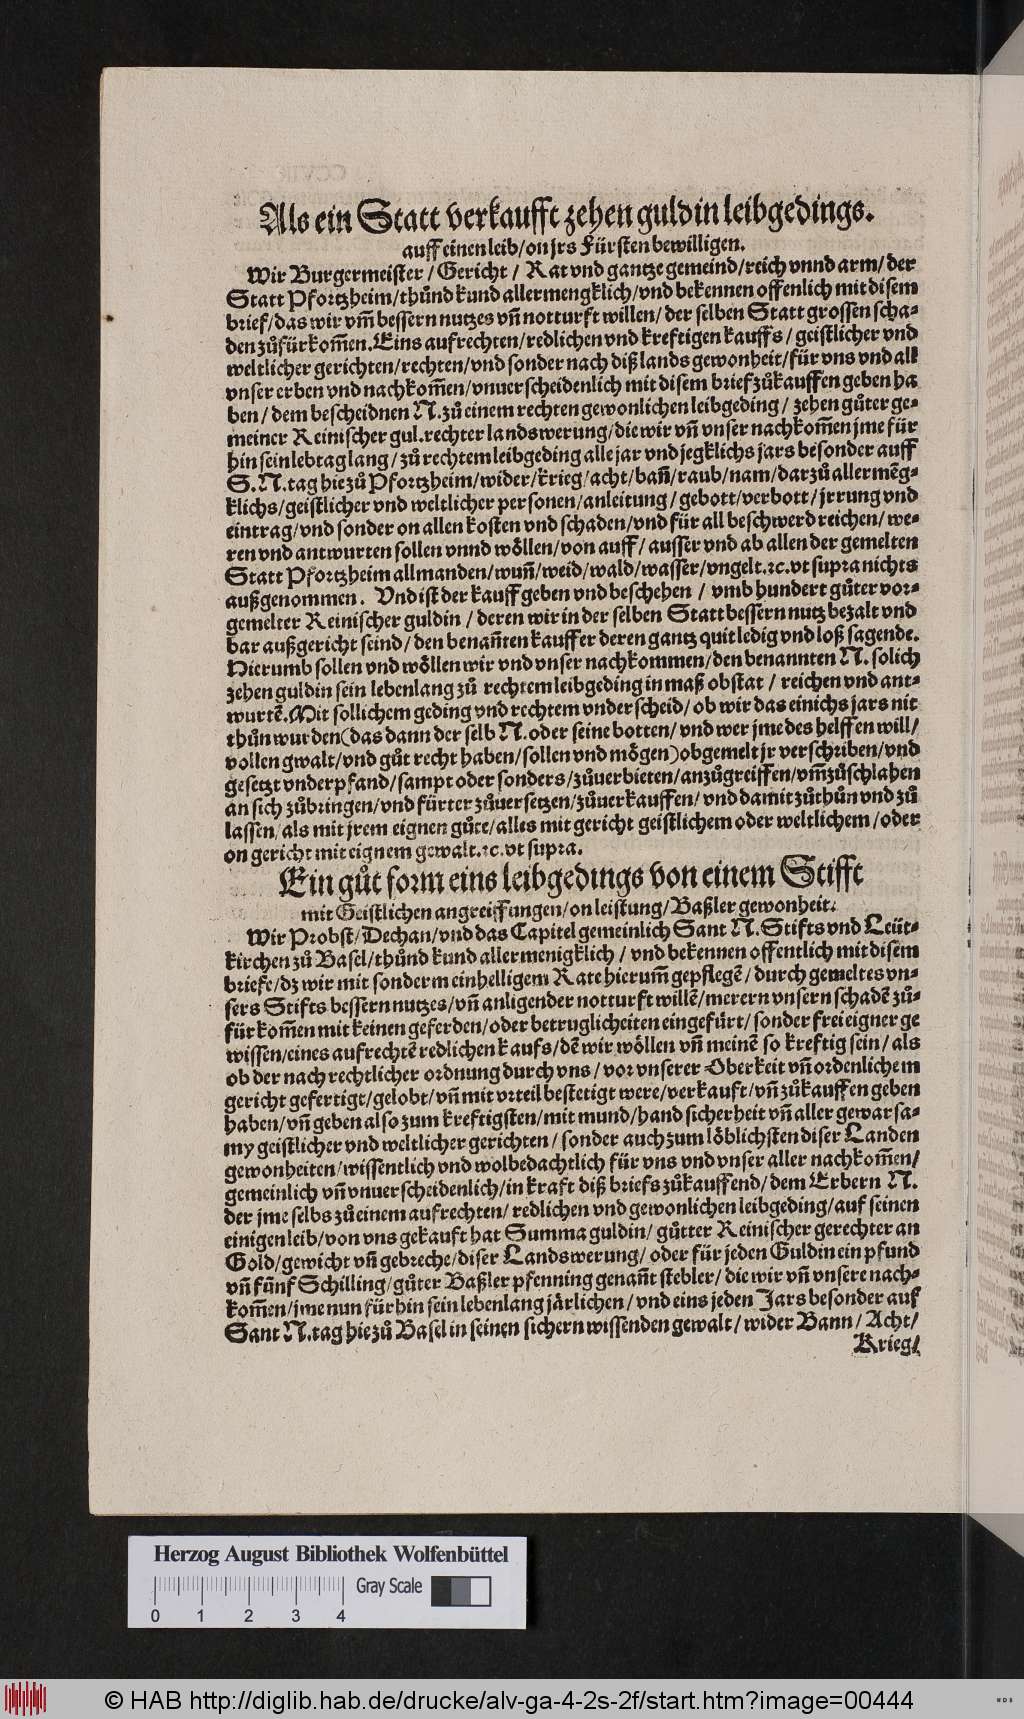 Als ein Statt verkaufft zehen guldin leibgedings.
auff einen leib/on jrs Fürsten bewilligen.
Wir Burgermeister/Gericht/Rat vnd gantze gemeind/reich vnnd arm/der
Statt Pfortzheim/thůnd kund allermengklich/vnd bekennen offenlich mit disem
brief/das wir vm̃ bessern nutzes vñ notturft willen/der selben Statt grossen scha⸗
den zůfürkom̃en. Eins aufrechten/redlichen vnd kreftigen kauffs/geistlicher vnd
weltlicher gerichten/rechten/vnd sonder nach diß lands gewonheit/für vns vnd all
vnser erben vnd nachkom̃en/vnuerscheidenlich mit disem brief zůkauffen geben ha
ben/dem bescheidnen N. zů einem rechten gewonlichen leibgeding/zehen gůter ge⸗
meiner Reinischer gul. rechter landswerung/die wir vñ vnser nachkom̃en jme für
hin sein lebtag lang/zů rechtem leibgeding alle jar vnd jegklichs jars besonder auff
S. N. tag hie zů Pfortzheim/wider/krieg/acht/bañ/raub/nam/darzů allermẽg⸗
klichs/geistlicher vnd weltlicher personen/anleitung/gebott/verbott/jrrung vnd
eintrag/vnd sonder on allen kosten vnd schaden/vnd für all beschwerd reichen/we⸗
ren vnd antwurten sollen vnnd wöllen/von auff/ausser vnd ab allen der gemelten
Statt Pfortzheim allmanden/wuñ/weid/wald/wasser/vngelt.ꝛc. vt supra nichts
außgenommen. Vnd ist der kauff geben vnd beschehen/vmb hundert gůter vor⸗
gemelter Reinischer guldin/deren wir in der selben Statt bessern nutz bezalt vnd
bar außgericht seind/den benañten kauffer deren gantz quit ledig vnd loß sagende.
Hierumb sollen vnd wöllen wir vnd vnser nachkommen/den benannten N. solich
zehen guldin sein lebenlang zů rechtem leibgeding in maß obstat/reichen vnd ant⸗
wurtẽ. Mit sollichem geding vnd rechtem vnderscheid/ob wir das einichs jars nit
thůn wurden(das dann der selb N. oder seine botten/vnd wer jme des helffen will/
vollen gwalt/vnd gůt recht haben/sollen vnd mögen)obgemelt jr verschriben/vnd
gesetzt vnderpfand/sampt oder sonders/zůuerbieten/anzůgreiffen/vm̃zůschlahen
an sich zůbringen/vnd fürter zůuersetzen/zůuerkauffen/vnd damit zůthůn vnd zů
lassen/als mit jrem eignen gůte/alles mit gericht geistlichem oder weltlichem/oder
on gericht mit eignem gewalt.ꝛc. vt supra.
Ein gůt form eins leibgedings von einem Stifft
mit Geistlichen angreiffungen/on leistung/Baßler gewonheit.
Wir Probst/Dechan/vnd das Capitel gemeinlich Sant N. Stifts vnd Leüt⸗
kirchen zů Basel/thůnd kund allermenigklich/vnd bekennen offentlich mit disem
briefe/dz wir mit sonderm einhelligem Rate hierum̃ gepflegẽ/durch gemeltes vn⸗
sers Stifts bessern nutzes/vñ anligender notturft willẽ/merern vnsern schadẽ zů⸗
fürkom̃en mit keinen geferden/oder betruglicheiten eingefürt/sonder frei eigner ge
wissen/eines aufrechtẽ redlichen kaufs/dẽ wir wöllen vñ meinẽ so kreftig sein/als
ob der nach rechtlicher ordnung durch vns/vor vnserer Oberkeit vñ ordenlichem
gericht gefertigt/gelobt/vñ mit vrteil bestetigt were/verkauft/vñ zůkauffen geben
haben/vñ geben also zum kreftigsten/mit mund/hand sicherheit vñ aller gewarsa⸗
my geistlicher vnd weltlicher gerichten/sonder auch zum löblichsten diser Landen
gewonheiten/wissentlich vnd wolbedachtlich für vns vnd vnser aller nachkom̃en/
gemeinlich vñ vnuerscheidenlich/in kraft diß briefs zůkauffend/dem Erbern N.
der jme selbs zů einem aufrechten/redlichen vnd gewonlichen leibgeding/auf seinen
einigen leib/von vns gekauft hat Summa guldin/gůtter Reinischer gerechter an
Gold/gewicht vñ gebreche/diser Landswerung/oder für jeden Guldin ein pfund
vñ fünf Schilling/gůter Baßler pfenning genañt stebler/die wir vñ vnsere nach⸗
kom̃en/jme nun fürhin sein lebenlang järlichen/vnd eins jeden Jars besonder auf
Sant N. tag hie zů Basel in seinen sichern wissenden gewalt/wider Bann/Acht/
Krieg/
Herzog August Bibliothek Wolfenbüttel
Gray Scale
0 1 2 3 4
© HAB http://diglib.hab.de/drucke/alv-ga-4-2s-2f/start.htm?image=00444